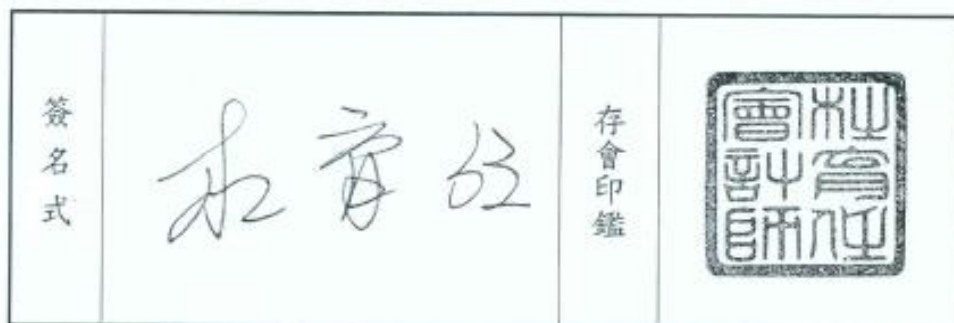 簽名式
杜育任
存會印鑑
杜育任
會計師